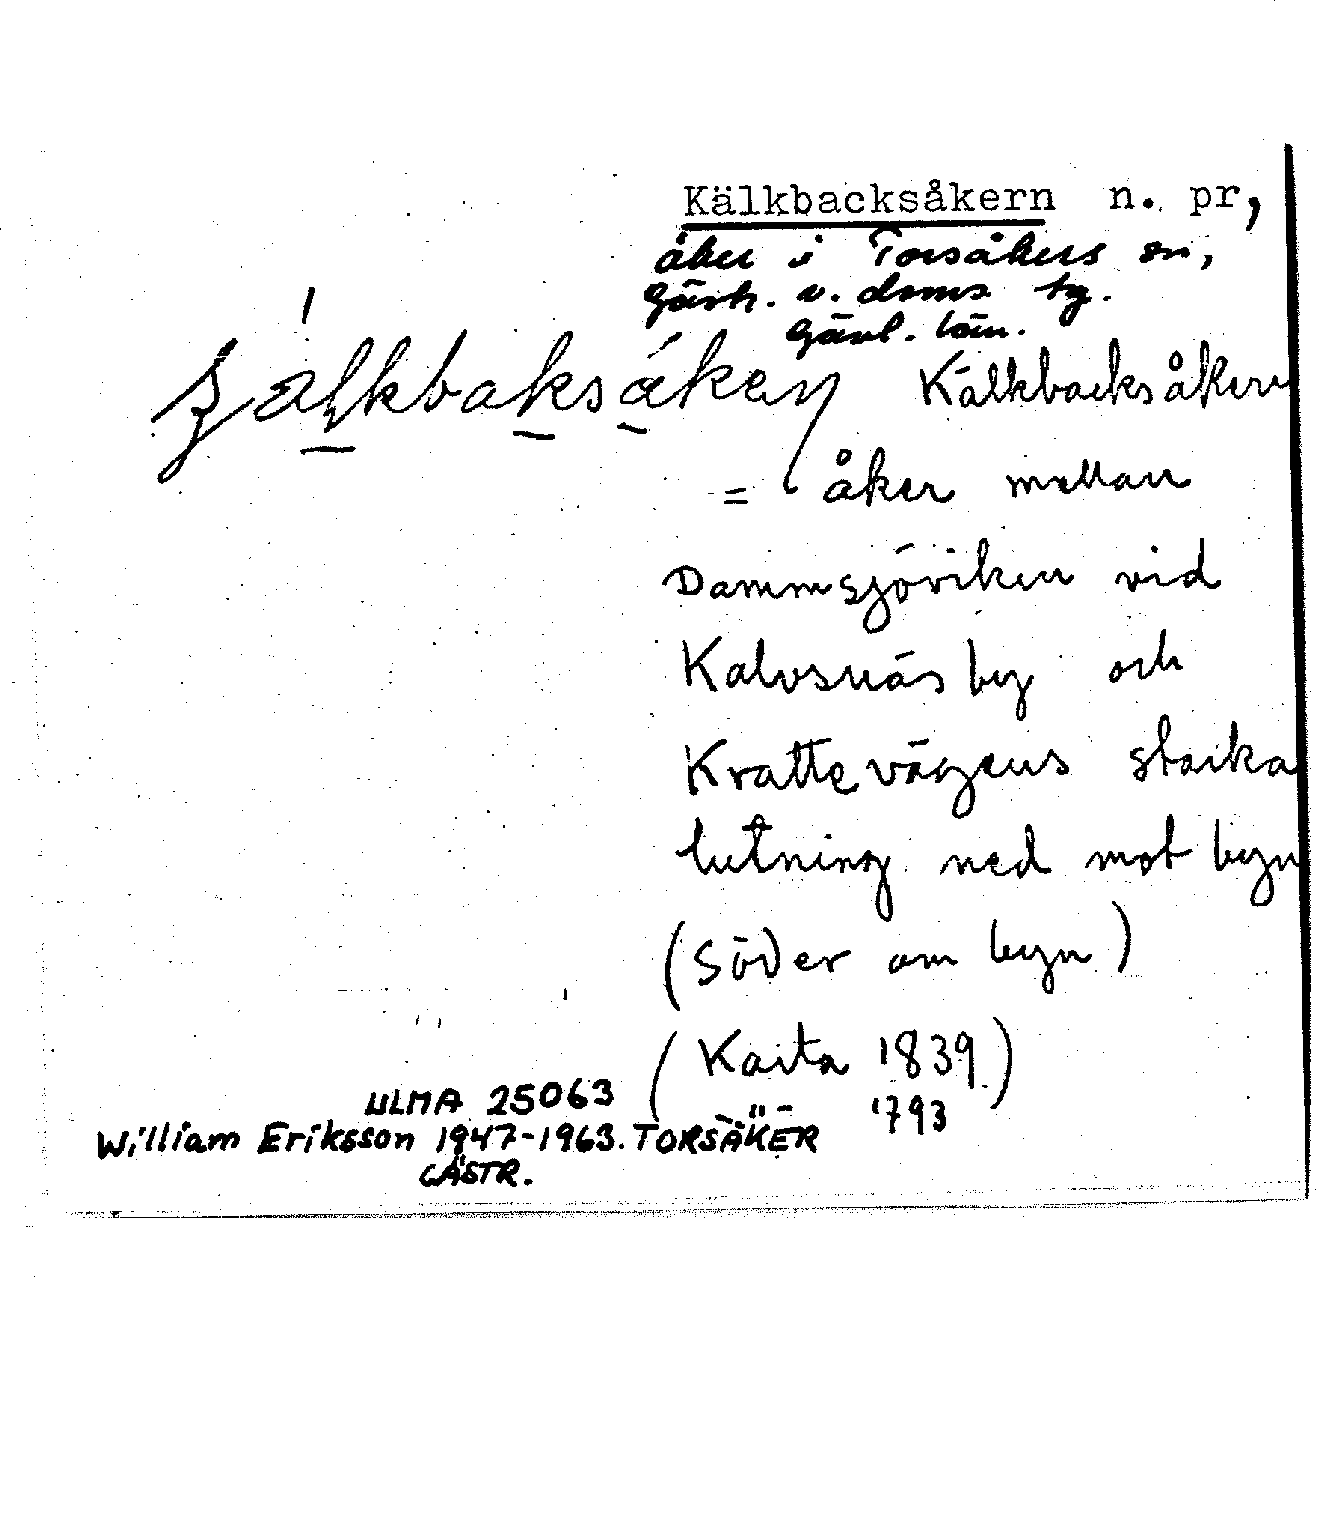 Kälkbacksåkern n. pr,
åker i Torsåkers sn,
Gästr. v. doms tg.
Gävl. län.
Kälkbacksåkern
= åker mellan
Dammsjöviken vid
Kalvsnäs by och
Krattevägens starka
lutning ned mot byn
(Söder om byn)
(Karta 1839)
1793
ULMA 25063
William Eriksson 1947-1963. TORSÅKER
GÄSTR.